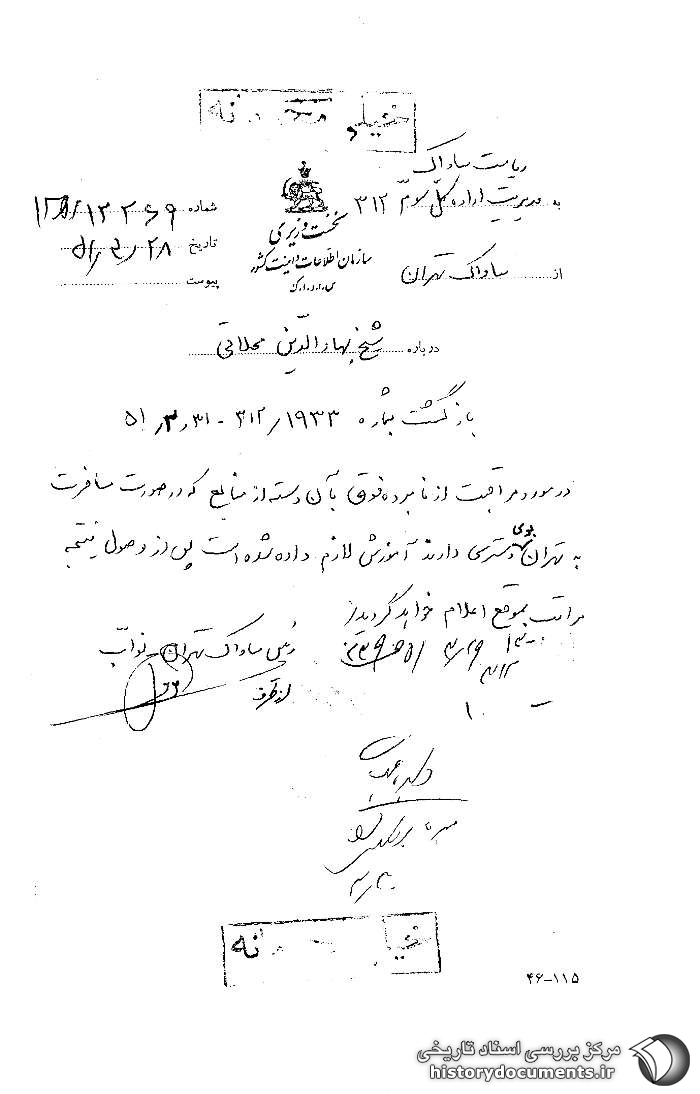 خیلی محرمانه
ریاست ساواک
به مدیریت اداره کل سوم ۳۱۲
شماره
تاریخ
پیوست
نخست وزیری
سازمان اطلاعات و امنیت کشور
س.ا.و.ا.ک
از ساواک تهران
درباره شیخ بهاءالدین محلاتی
بازگشت بشماره ۳۱۲/۱۹۳۳ - ۵۱٫۳٫۳۱
در مورد مراقبت از نامبرده فوق بآن دسته از منابع که در صورت مسافرت
به تهران بوی دسترسی دارند آموزش لازم داده شده است پس از وصول نتیجه
مراتب بموقع اعلام خواهد گردید
رئیس ساواک تهران نواب
از طرف
۳۱۲
خیلی محرمانه
۴۶-۱۱۵
مرکز بررسی اسناد تاریخی
historydocuments.ir